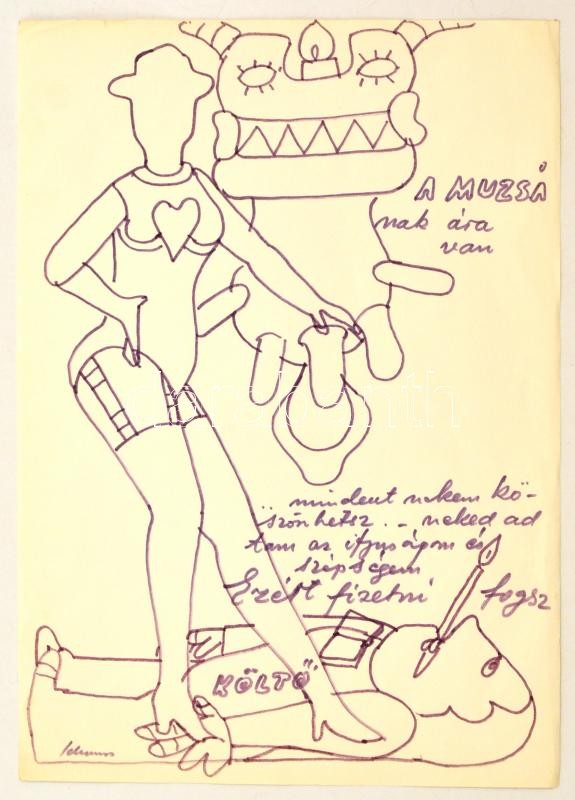 A MUZSÁ
nak ára
van
"mindent nekem kö-
szönhetsz... neked ad
tam az ifjuságom és
szépségem
Ezért fizetni fogsz
KÖLTŐ